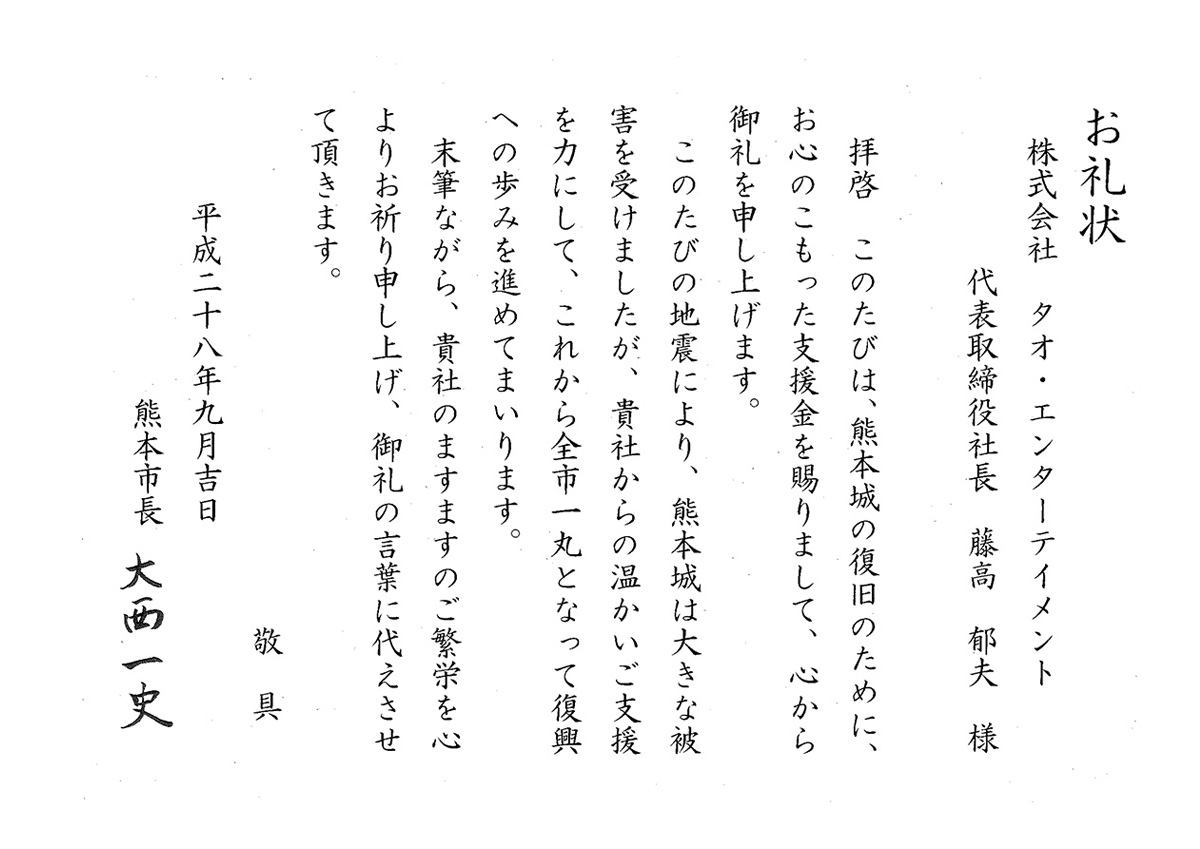 お礼状
株式会社　タオ・エンターテイメント
代表取締役社長　藤高　郁夫　様
拝啓　このたびは、熊本城の復旧のために、
お心のこもった支援金を賜りまして、心から
御礼を申し上げます。
このたびの地震により、熊本城は大きな被
害を受けましたが、貴社からの温かいご支援
を力にして、これから全市一丸となって復興
への歩みを進めてまいります。
末筆ながら、貴社のますますのご繁栄を心
よりお祈り申し上げ、御礼の言葉に代えさせ
て頂きます。
敬　具
平成二十八年九月吉日
熊本市長　大西一史